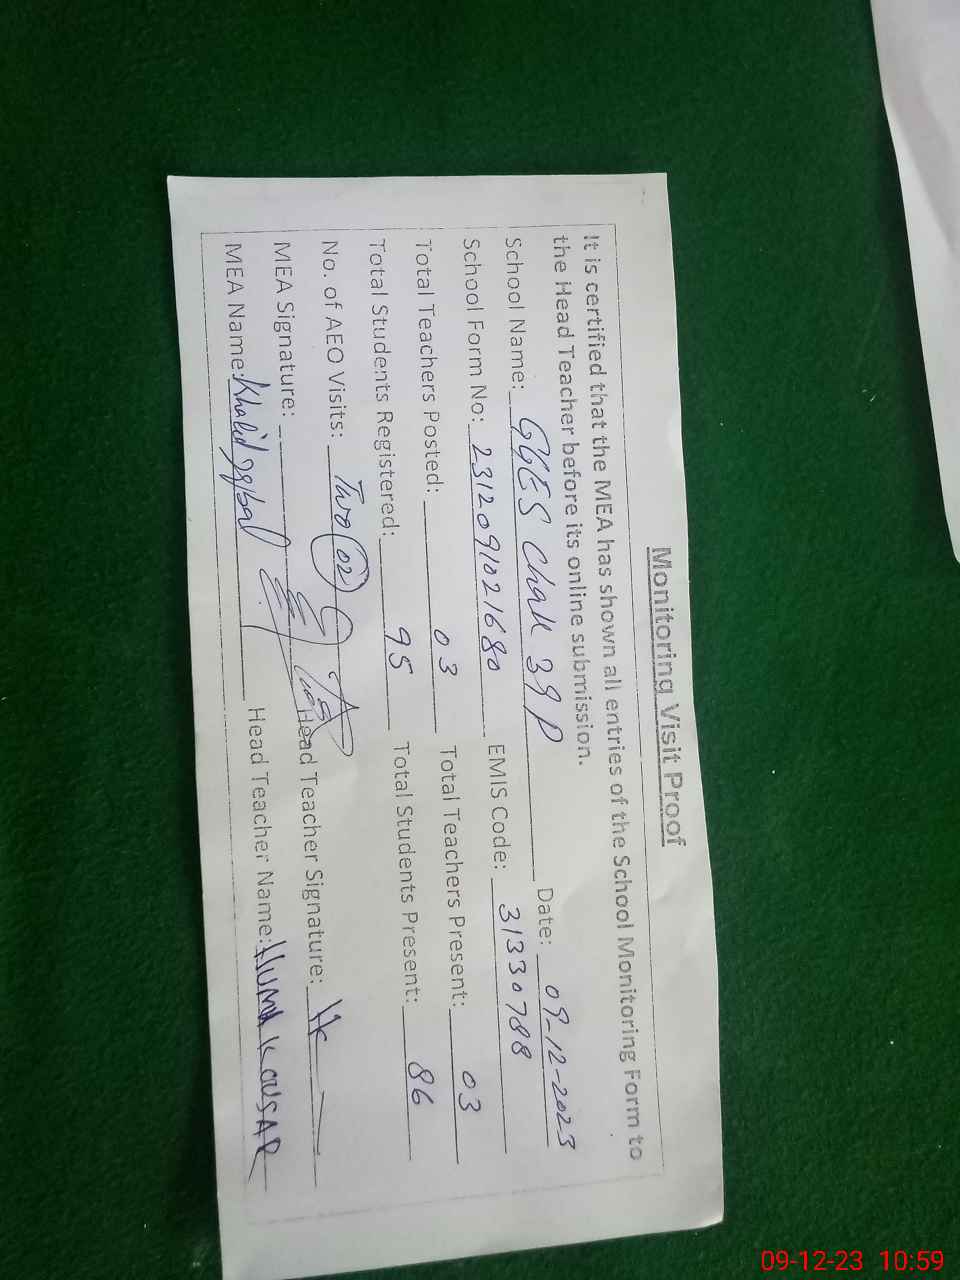 Monitoring Visit Proof
It is certified that the MEA has shown all entries of the School Monitoring Form to
the Head Teacher before its online submission.
School Name: GGES Chak 39 P Date: 09-12-2023
School Form No: 231209102 1680 EMIS Code: 31330788
Total Teachers Posted: 03 Total Teachers Present: 03
Total Students Registered: 95 Total Students Present: 86
No. of AEO Visits: Two 02
MEA Signature: Head Teacher Signature:
MEA Name: Khalid Iqbal Head Teacher Name: HUMA KOUSAR
09-12-23 10:59